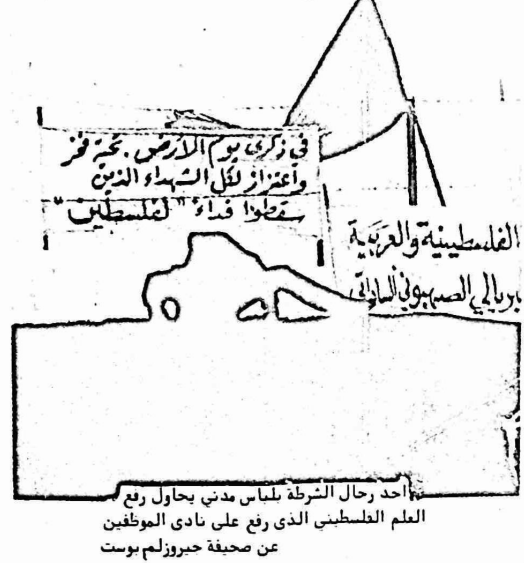 في ذكرى يوم الأرض. تحية فخر
وأعتزاز لكل الشهداء الذين
سقطوا فداءً "لفلسطين"
الفلسطينية والعربية
بريالي الصهيوني الساداتي
احد رحال الشرطة بلباس مدني يحاول رفع
العلم الفلسطيني الذى رفع على نادى الموظفين
عن صحيفة جيروزلم بوست